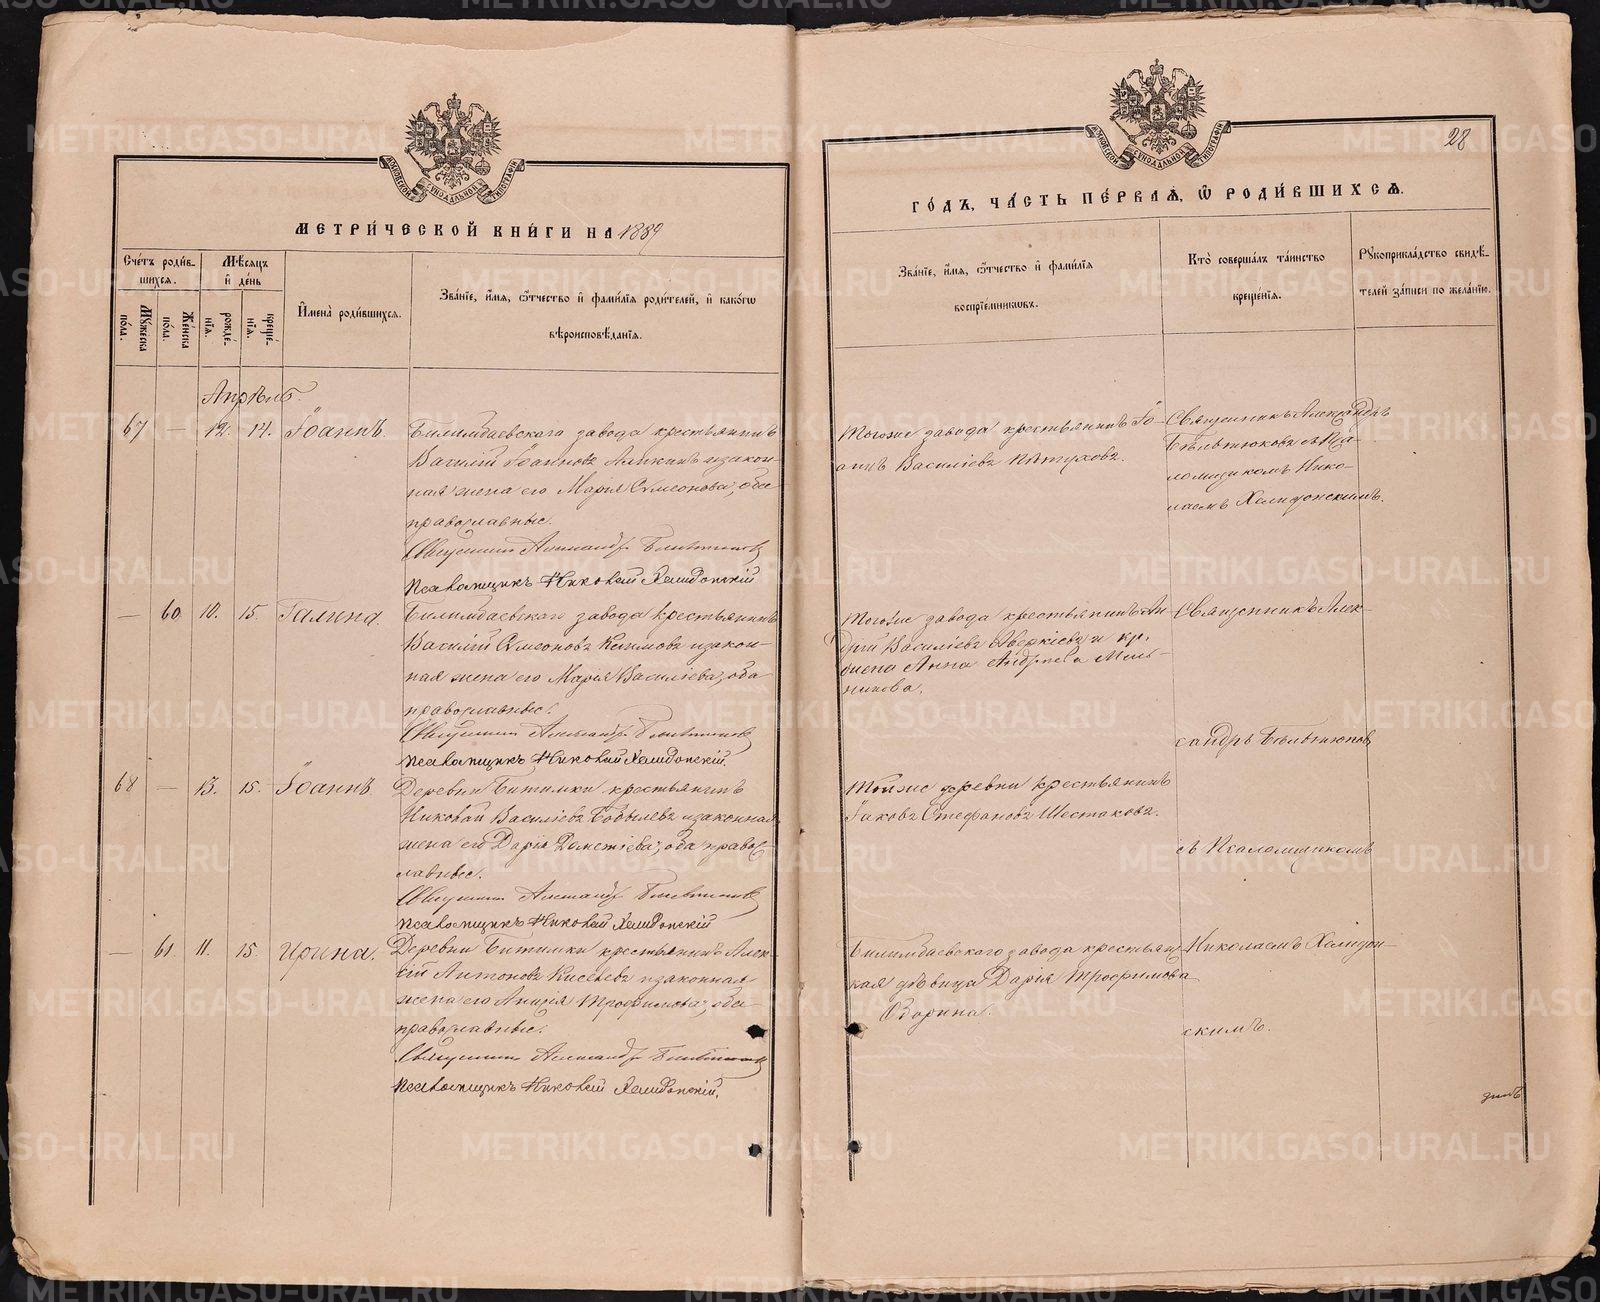 28
МОСКОВСКОЙ СѴНОДАЛЬНОЙ ТИПОГРАФІИ
МЕТРИ́ЧЕСКОЙ КНИ́ГИ НА 1889
Сче́тъ роди́в-
шихся.
Мѣ́сяцъ
и҆ де́нь
Му́жеска
по́ла.
Же́нска
по́ла.
рожде́-
нїя.
креще́-
нїя.
И҆мена̀ роди́вшихся.
Зва́нїе, и҆́мя, ѻ҆́тчество и҆ фами́лїя роди́телей, и҆ како́гѡ
вѣроисповѣ́данїя.
Апрѣль.
67 — 12. 14. Іоаннъ.
Билимбаевскаго завода крестьянинъ
Василій Іоанновъ Аликинъ и закон-
ная жена его Марія Сѵмеонова, оба
православные.
Священникъ Александръ Бѣлтюковъ
Псаломщикъ Николай Хелидонскій
— 60. 10. 15. Галина.
Билимбаевскаго завода крестьянинъ
Василій Сѵмеоновъ и закон-
ная жена его Марія Василіева, оба
православные.
Священникъ Александръ Бѣлтюковъ
Псаломщикъ Николай Хелидонскій.
68 — 13. 15. Іоаннъ
Деревни Битимки крестьянинъ
Николай Василіевъ Бобылевъ и законная
жена его Дарія Дометіева, оба право-
славные.
Священникъ Александръ Бѣлтюковъ
Псаломщикъ Николай Хелидонскій
— 61. 11. 15. Ирина.
Деревни Битимки крестьянинъ Алек-
сій Антоновъ Киселевъ и законная
жена его Трофимова, оба
православные.
Священникъ Александръ Бѣлтюковъ
Псаломщикъ Николай Хелидонскій.
МОСКОВСКОЙ СѴНОДАЛЬНОЙ ТИПОГРАФІИ
ГО́ДЪ, ЧА́СТЬ ПЕ́РВАЯ, Ѡ҆ РОДИ́ВШИХСЯ.
Зва́нїе, и҆́мя, ѻ҆́тчество и҆ фами́лїя
воспрїе́мниковъ.
Кто̀ соверша́лъ та́инство
креще́нїя.
Рꙋкоприкла́дство свидѣ́-
телей за́писи по жела́нїю.
Тогоже завода крестьянинъ Іо-
аннъ Василіевъ Пѣтуховъ.
Священникъ Александръ
Бѣлтюковъ съ Пса-
ломщикомъ Нико-
лаемъ Хелидонскимъ.
Тогоже завода крестьянинъ Ан-
дрій Василіевъ Аверкіевъ и кр.
жена Анна Андреева Мель-
никова.
Священникъ Алек-
сандръ Бѣлтюковъ
Тойже деревни крестьянинъ
Іаковъ Стефановъ Шестаковъ.
съ Псаломщикомъ
Билимбаевскаго завода крестьян-
ская дѣвица Дарія Трофимова
Оборина.
Николаемъ Хелидон-
скимъ.
METRIKI.GASO-URAL.RU